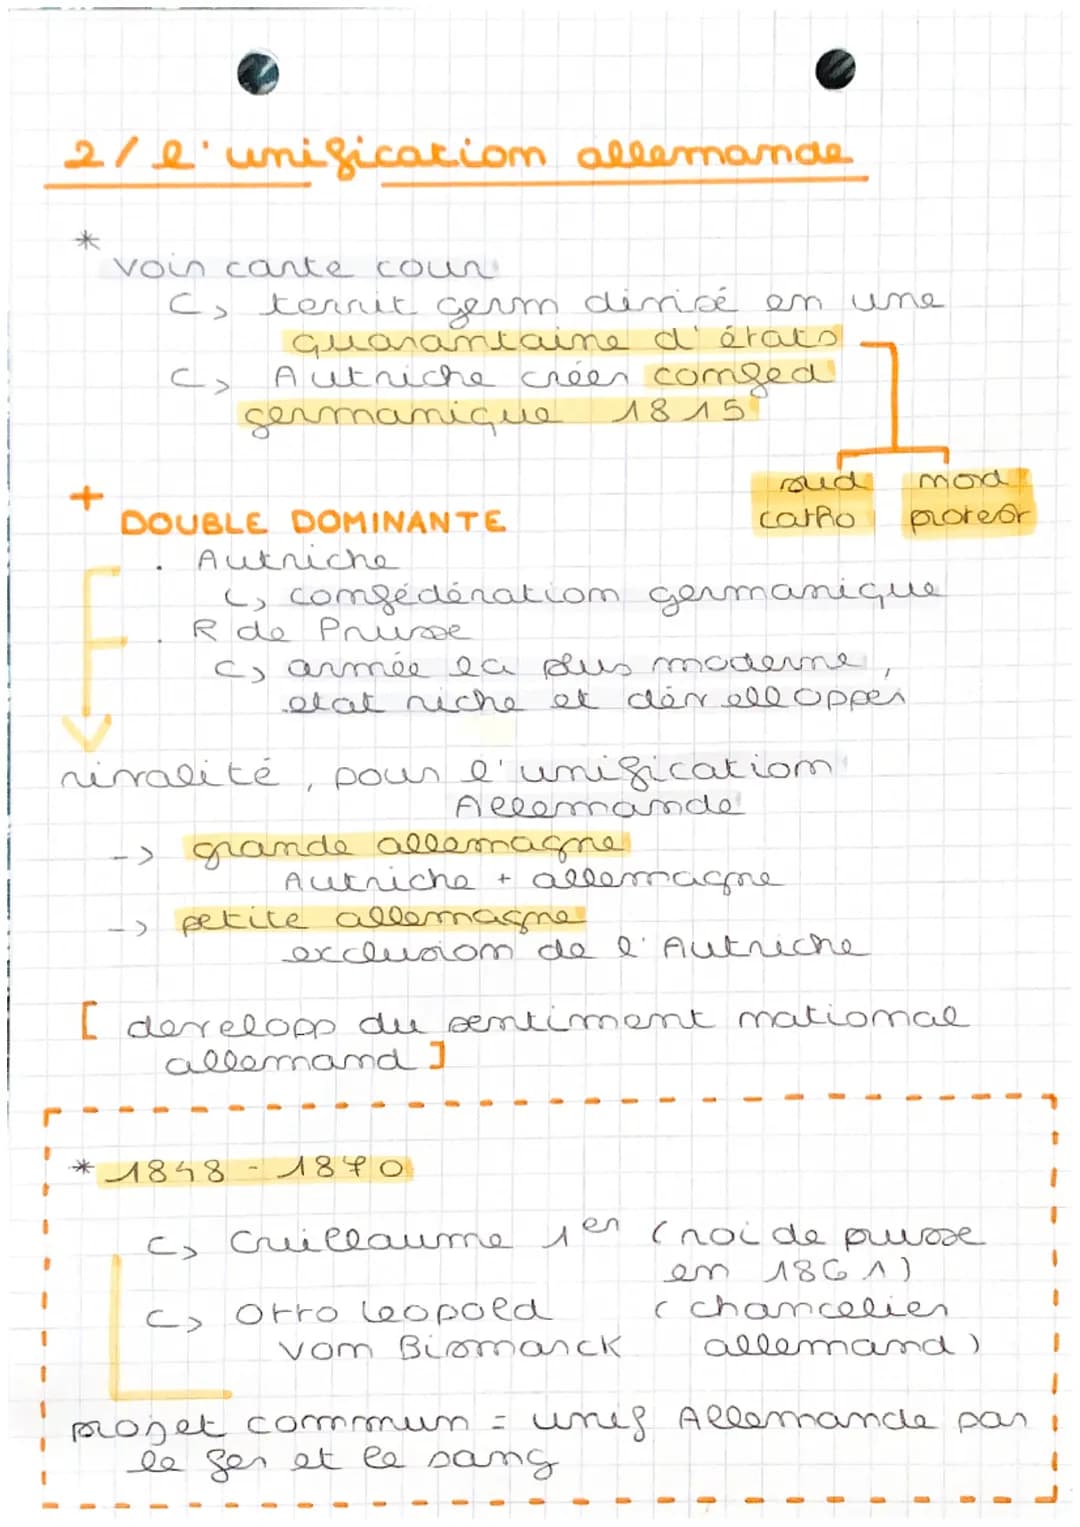 2/ l'unification allemande
* voir carte cour
↳ territ germ divisé en une
quarantaine d'états
↳ Autriche créer confed
germanique 1815
sud nord
catho protest
+ DOUBLE DOMINANTE
. Autriche
↳ confédération germanique
. R de Prusse
↳ armée la plus moderne,
etat riche et dévellopper
rivalité, pour l'unification
Allemande
-> grande allemagne
Autriche + allemagne
-> petite allemagne
exclusion de l'Autriche
[ developp du sentiment national
allemand ]
* 1848 - 1870
↳ Guillaume 1er (roi de prusse
en 1861)
↳ Otto Leopold (chancelier
von Bismarck allemand)
projet commun = unif Allemande par
le fer et le sang